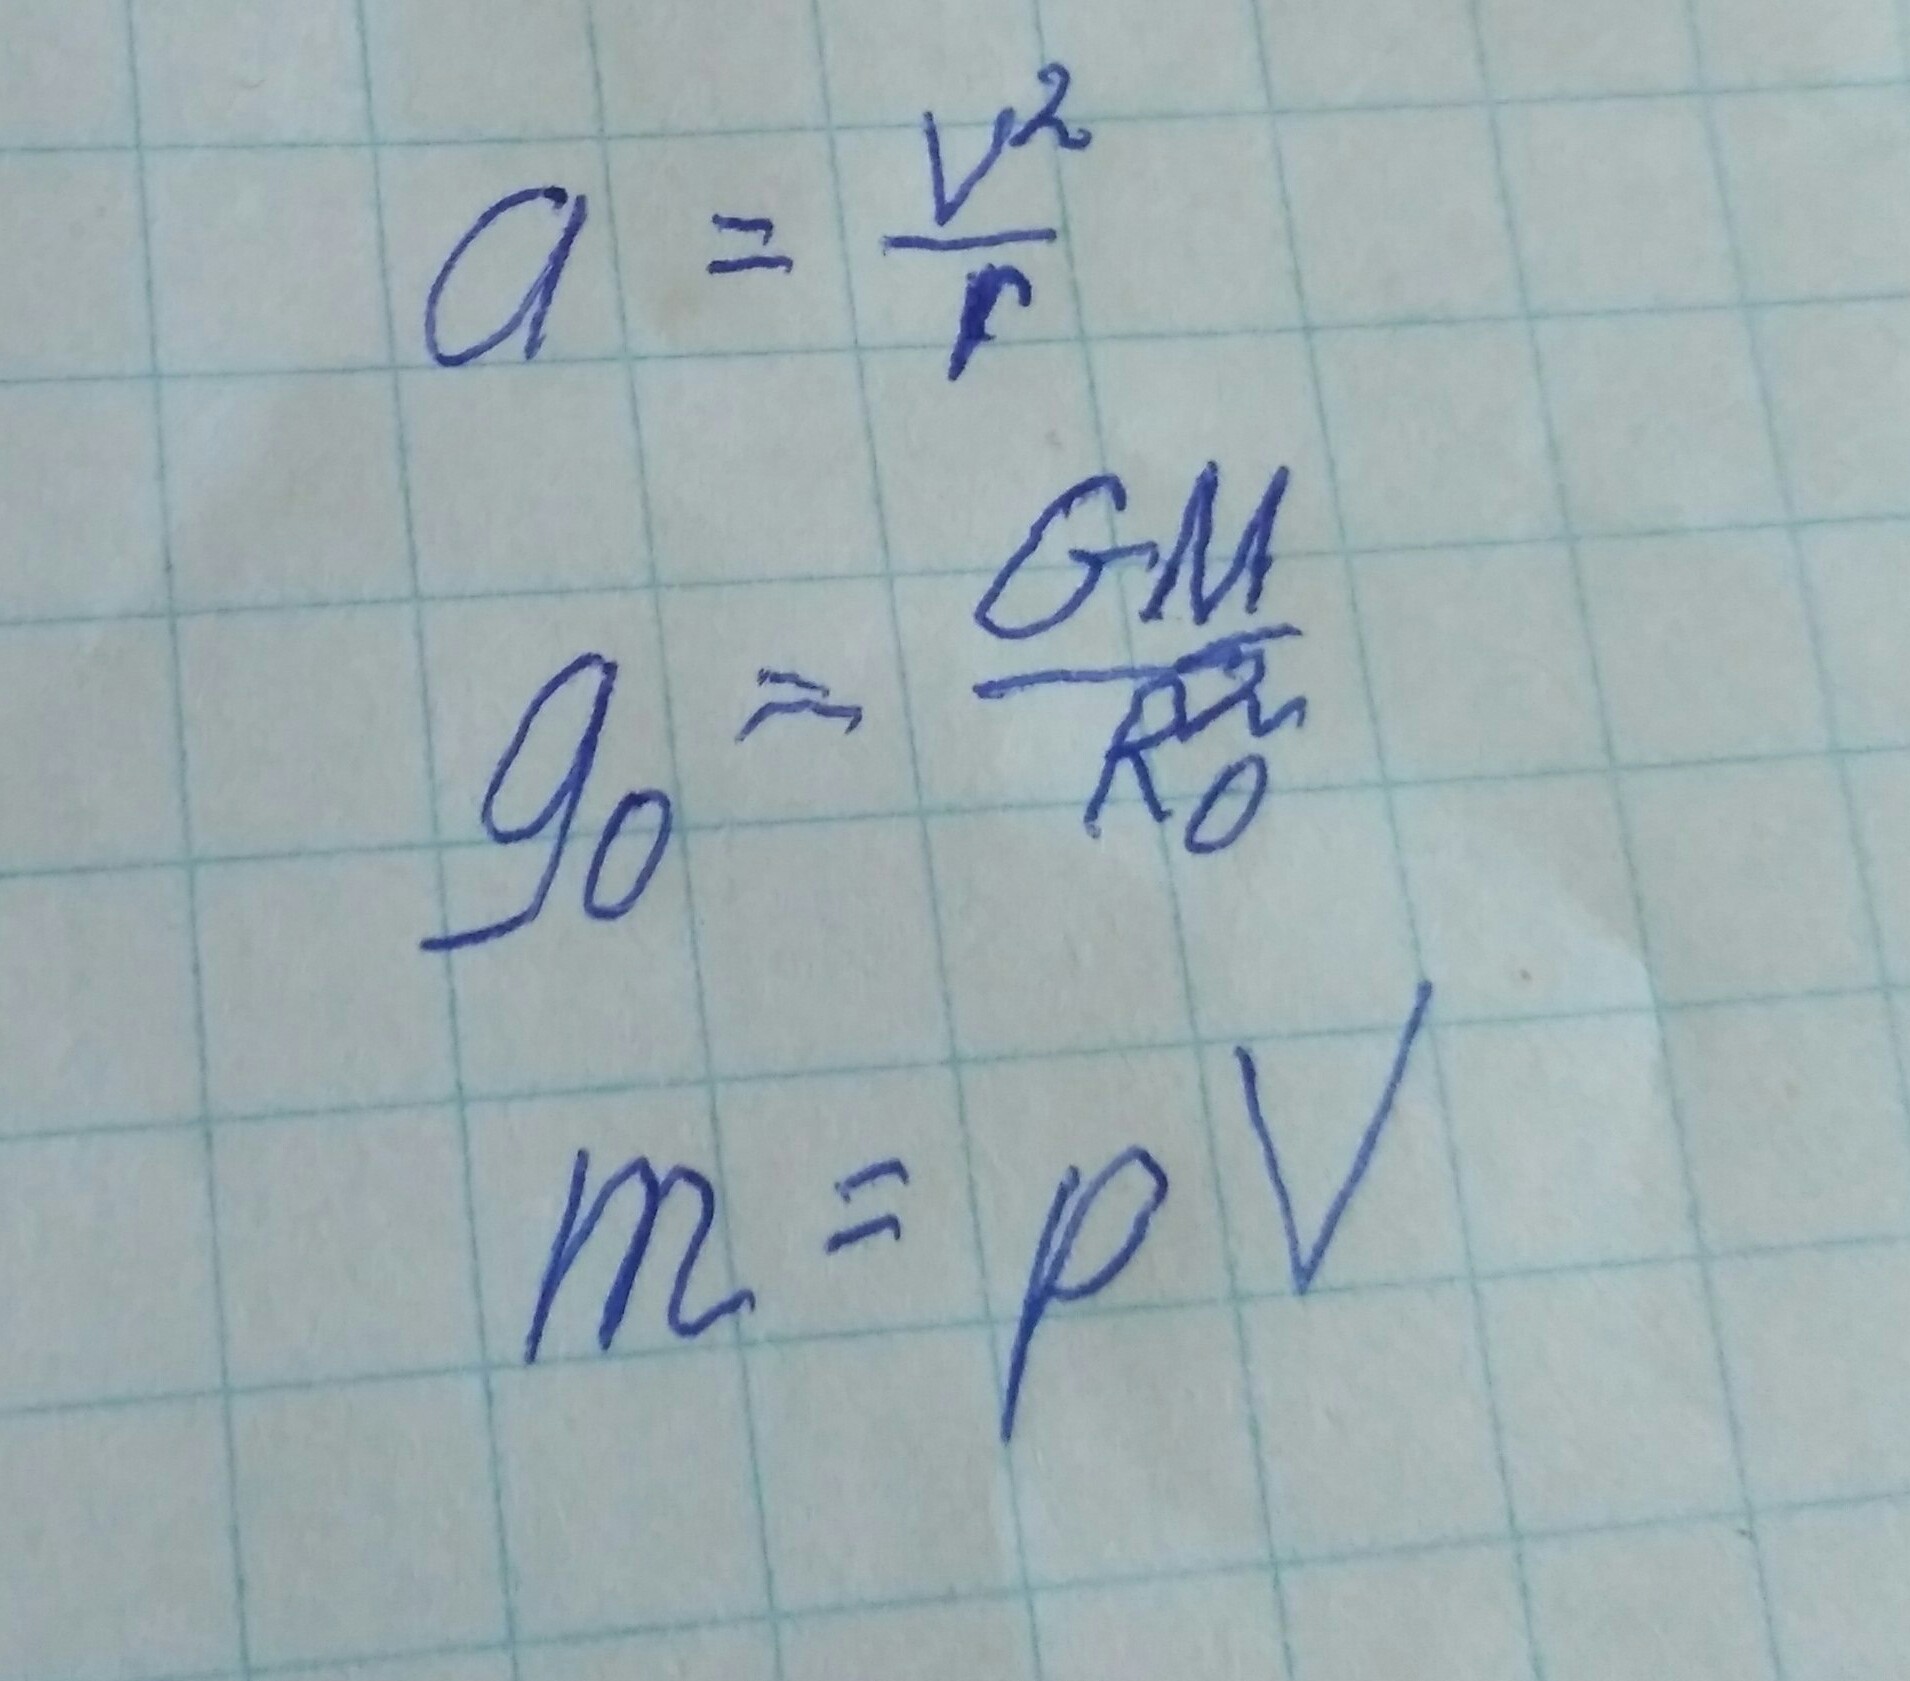 a = v²/r
g₀ = GM/R₀²
m = ρV